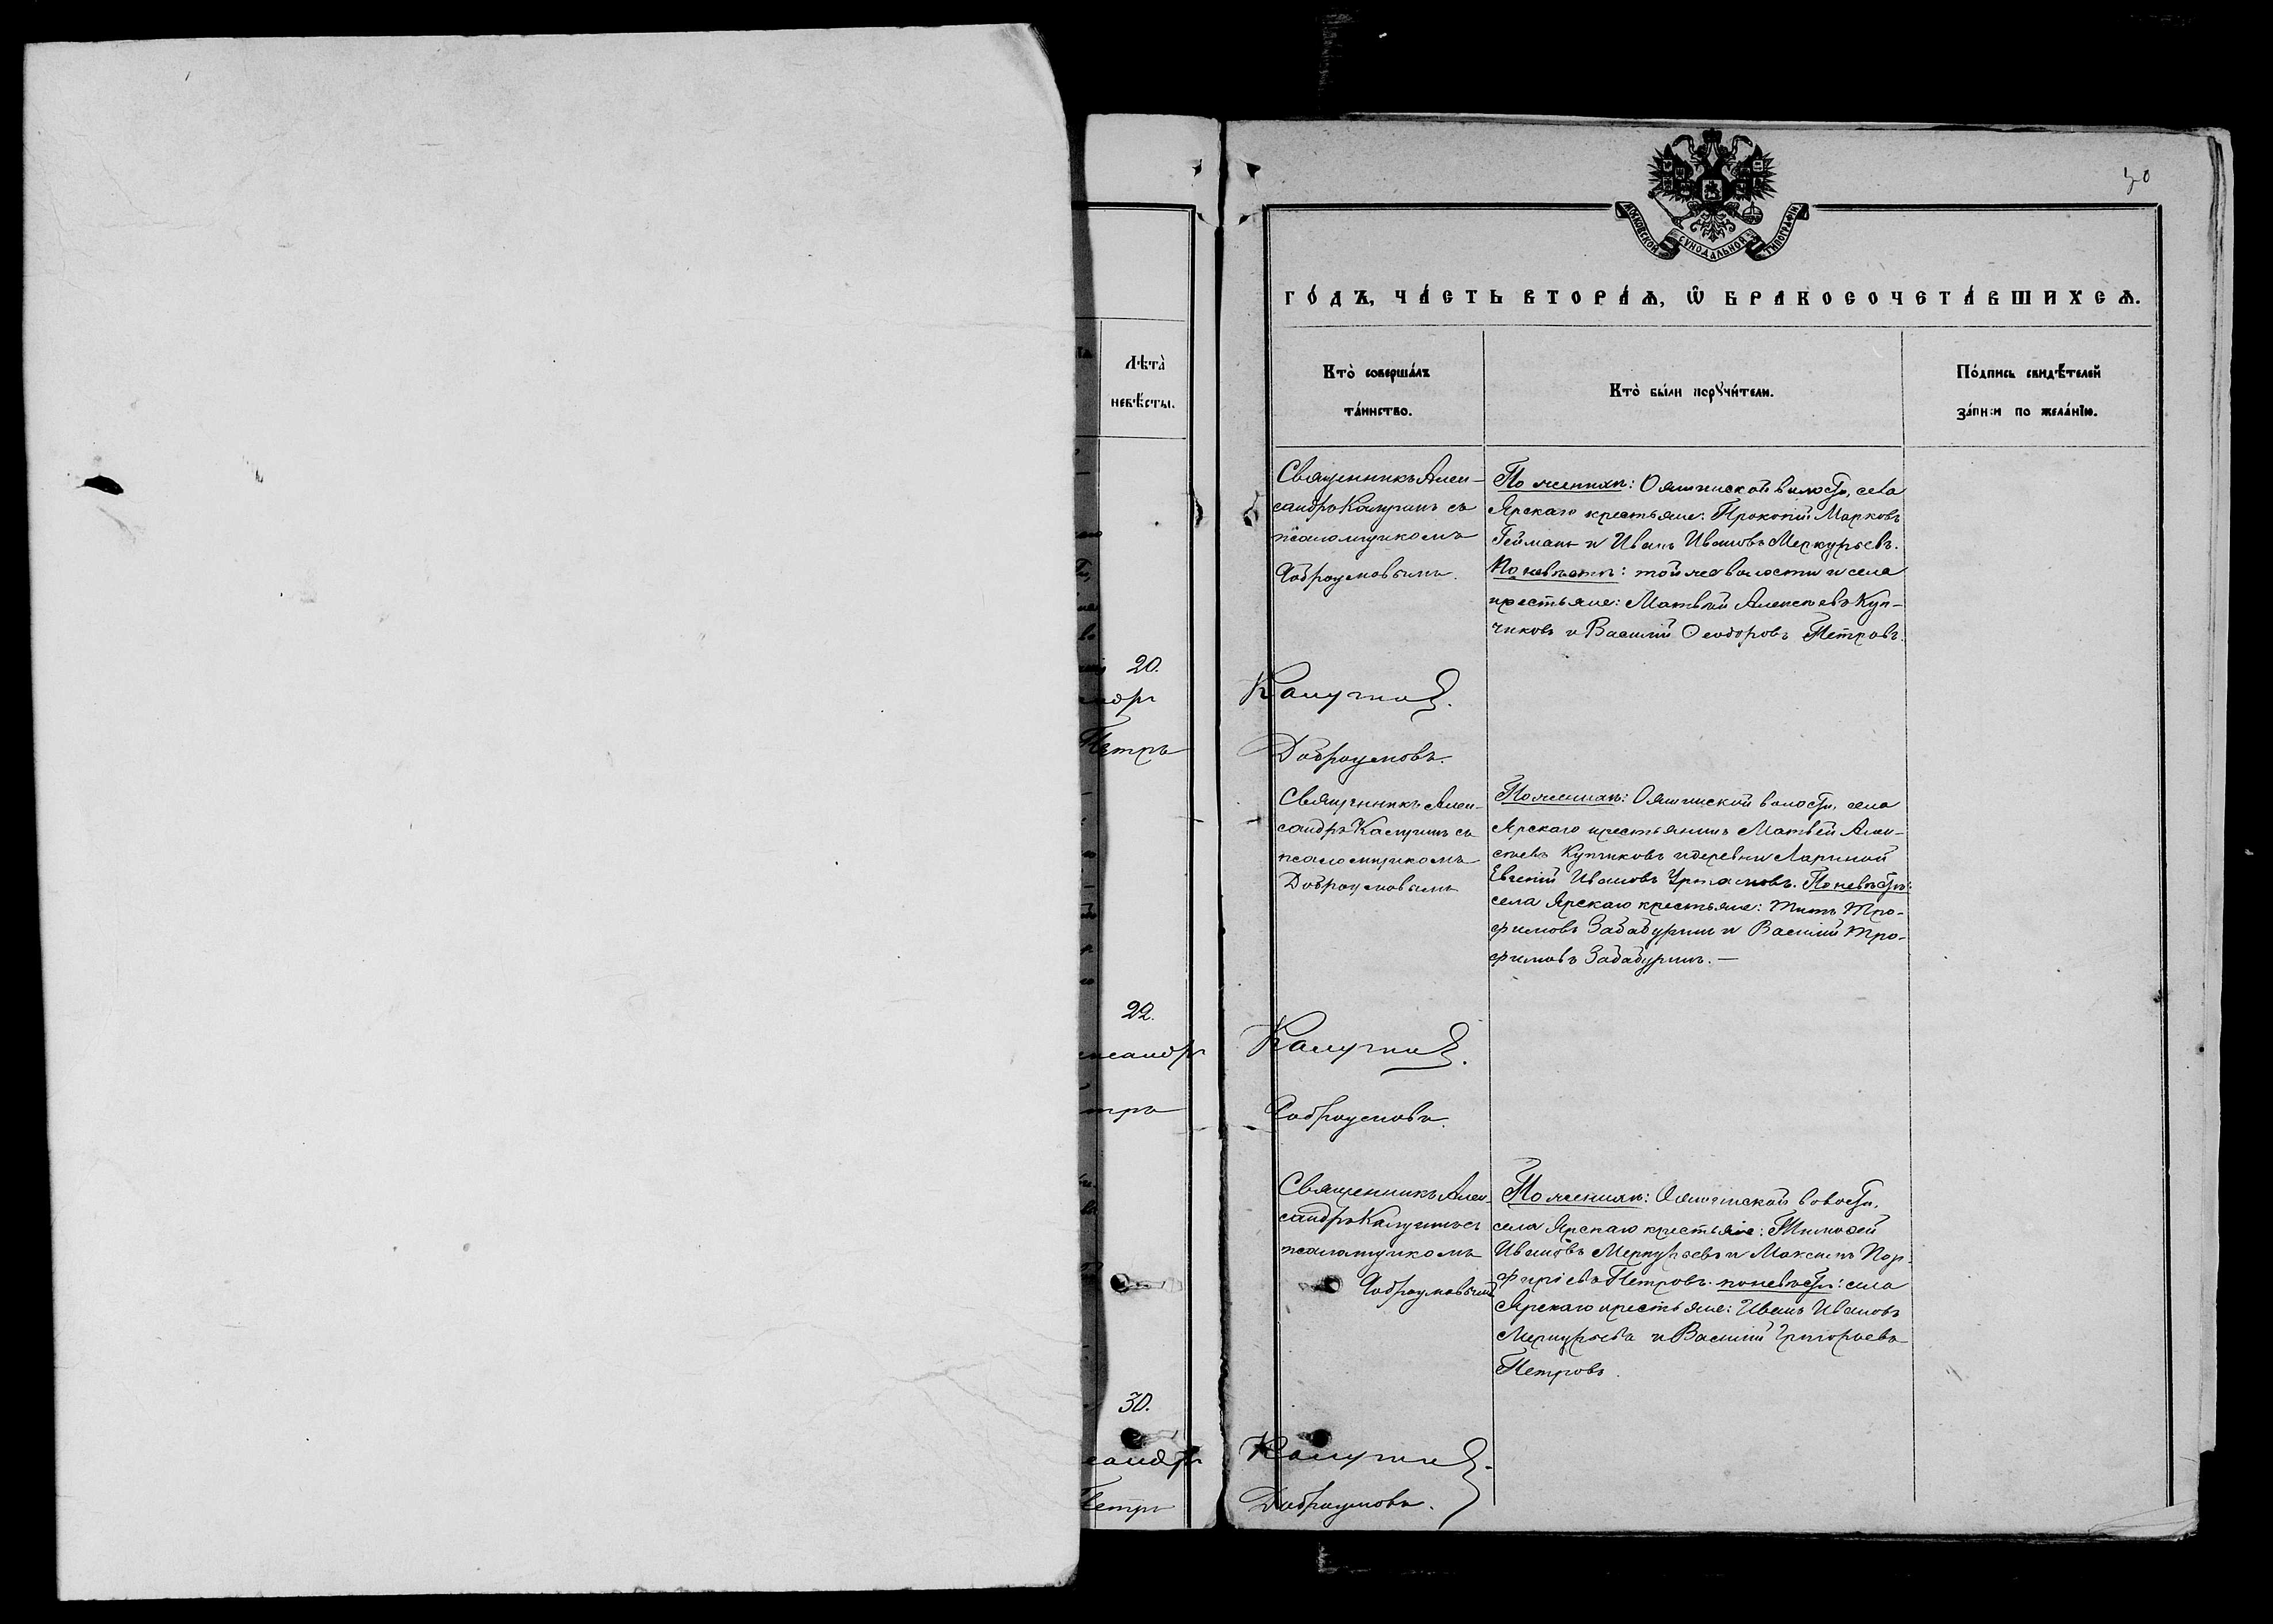 30
МОСКОВСКОЙ СѴНОДАЛЬНОЙ ТИПОГРАФІИ
ГО́ДЪ, ЧА́СТЬ ВТОРА́Ѧ, Ѡ҆ БРАКОСОЧЕТА́ВШИХСѦ.
Лѣта̀
невѣ́сты.
Кто̀ соверша́лъ
та́инство.
Кто̀ бы́ли порꙋчи́тели.
По́дпись свидѣ́телей
за́писи по жела́нїю.
20.
Петръ
22.
ксандръ
тръ
30.
сандръ
Петръ
Священникъ Алек-
сандръ Калугинъ съ
псаломщикомъ
Доброумовымъ.
Калугин
Доброумовъ.
По женихѣ: Ояшинской волости, села
Ярскаго крестьяне: Прокопій Марковъ
Гейманъ и Иванъ Ивановъ Меркурьевъ.
По невѣстѣ: той же волости и села
крестьяне: Матвѣй Алексѣевъ Куп-
чиковъ и Василій Ѳеодоровъ Петровъ.
Священникъ Алек-
сандръ Калугинъ съ
псаломщикомъ
Доброумовымъ
Калугин
Доброумовъ.
По женихѣ: Ояшинской волости, села
Ярскаго крестьянинъ Матвѣй Алек-
сѣевъ Купчиковъ и деревни Лариной
Евгеній Ивановъ По невѣстѣ:
села Ярскаго крестьяне: Титъ Тро-
фимовъ Забабуринъ и Василій Тро-
фимовъ Забабуринъ. —
Священникъ Алек-
сандръ Калугинъ съ
псаломщикомъ
Доброумовымъ
Калугин
Доброумовъ.
По женихѣ: Ояшинской волости,
села Ярскаго крестьяне: Тимоѳей
Ивановъ Меркурьевъ и Максимъ Пор-
фирьевъ Петровъ. по невѣстѣ: села
Ярскаго крестьяне: Иванъ Ивановъ
Меркурьевъ и Василій Григорьевъ
Петровъ.